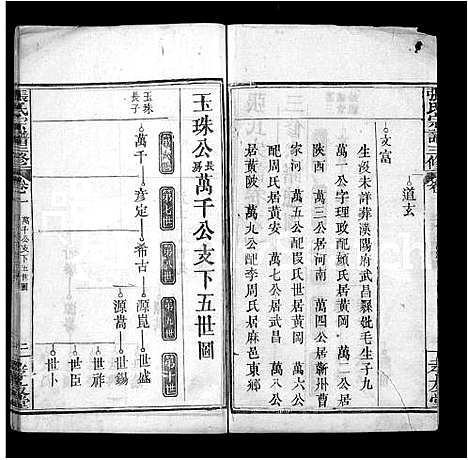 張氏宗譜三修
文富
道玄
生沒未詳葬漢陽府武昌縣妣毛生子九
萬一公字理政配顏氏居黃岡 萬二公居
陝西 萬三公居河南 萬四公居蘄州曹
家河 萬五公配段氏世居黃岡 萬六公
配周氏居黃陂 萬七公居武昌 萬八公
配李周氏居麻邑東鄉
孝友堂
玉珠公長房萬千公支下五世圖
第六世
第七世
第八世
第九世
第十世
玉珠長子
萬千
彥定
希古
源崑
世盛
源嵩
世錫
世祚
世臣
世卜
張氏宗譜三修
萬千公支下五世圖
孝友堂